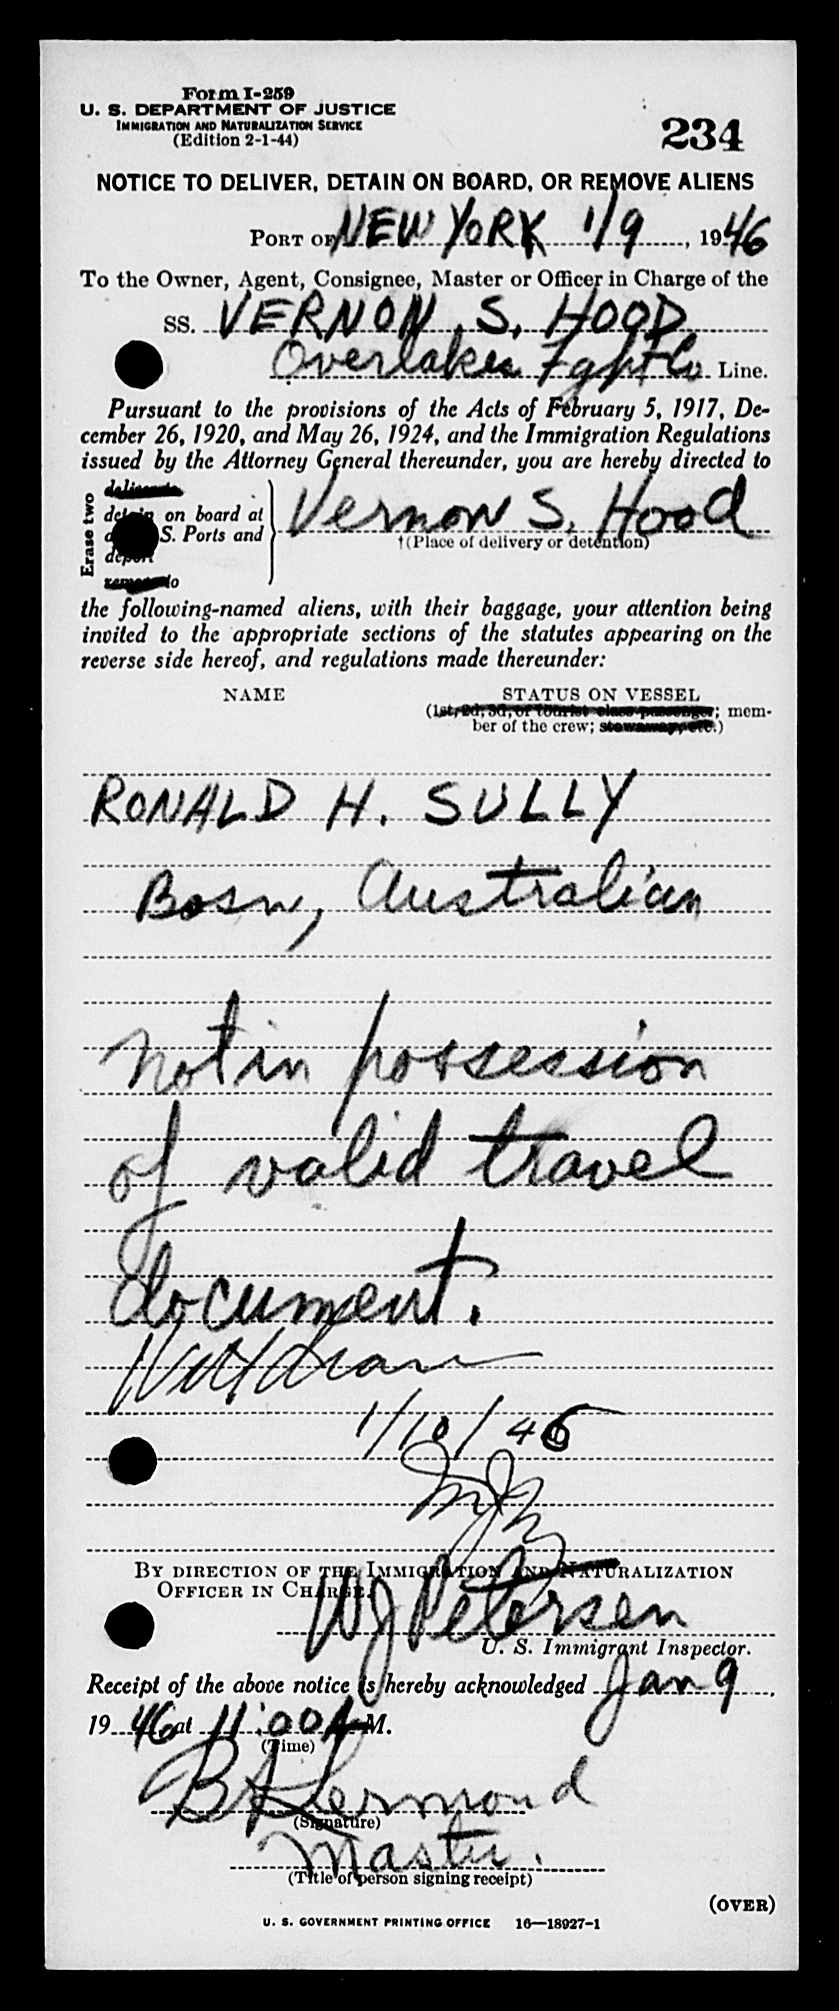 Form I-259
U. S. DEPARTMENT OF JUSTICE
IMMIGRATION AND NATURALIZATION SERVICE
(Edition 2-1-44)
234
NOTICE TO DELIVER, DETAIN ON BOARD, OR REMOVE ALIENS
PORT OF NEW YORK 1/9, 1946
To the Owner, Agent, Consignee, Master or Officer in Charge of the
SS. VERNON S. HOOD
Overlakes Fght Co Line.
Pursuant to the provisions of the Acts of February 5, 1917, De-
cember 26, 1920, and May 26, 1924, and the Immigration Regulations
issued by the Attorney General thereunder, you are hereby directed to
Erase two
detain on board at
S. Ports and
deport
Vernon S. Hood
†(Place of delivery or detention)
the following-named aliens, with their baggage, your attention being
invited to the appropriate sections of the statutes appearing on the
reverse side hereof, and regulations made thereunder:
NAME STATUS ON VESSEL
(1st, 2d, 3d, or tourist class passenger; mem-
ber of the crew; stowaway, etc.)
RONALD H. SULLY
Bosn, Australian
Not in possession
of valid travel
document.
Withdrawn
1/10/46
BY DIRECTION OF THE IMMIGRATION AND NATURALIZATION
OFFICER IN CHARGE.
WJ Petersen
U. S. Immigrant Inspector.
Receipt of the above notice is hereby acknowledged Jan 9,
1946 at 11:00 A M.
(Time)
Lermond
(Signature)
Master.
(Title of person signing receipt)
(OVER)
U. S. GOVERNMENT PRINTING OFFICE 16—18927-1